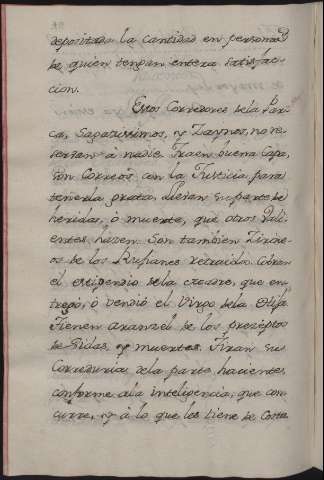 depositada la cantidad en persona
de quien tengan entera satisfac-
cion.
Estos Corredores de la Par-
ca, sagacissimos, y Zaynos, no re-
servan à nadie. Traen buena Capa,
son Correos con la Justicia, para
tenerla grata. Llevan su parte de
heridas, ò muerte, que otros Vali-
entes hazen. Son tambien Zirine-
os de los Rufianes retraidos. Cobran
el estipendio de la que en-
tregò, ò vendiò el Virgo de la Hija.
Tienen aranzel de los preceptos
de Vidas, y muertes. Tiran sus
Corredurias de la parte hacientes,
conforme a la inteligencia, que con-
curre, y à lo que les tiene de Costa